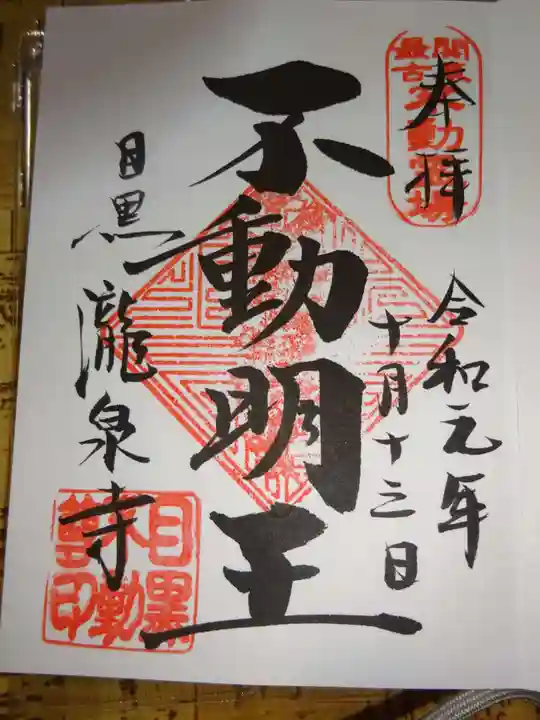 奉拝
関東最古不動霊場
令和元年
十月十三日
不動明王
目黒瀧泉寺
目黒不動尊印